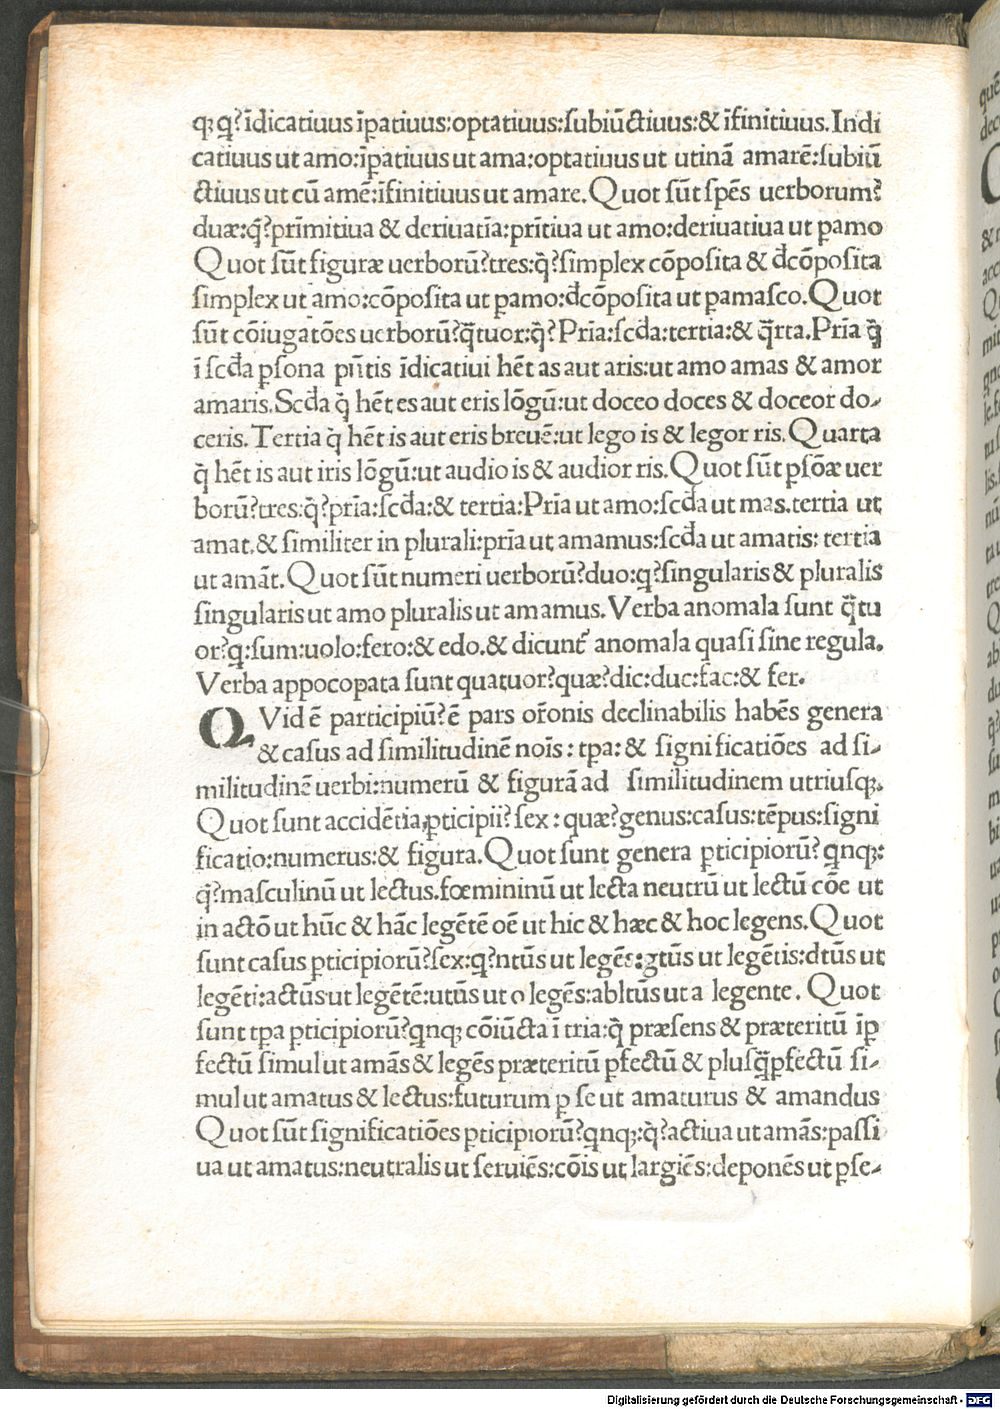 qꝫ q̃? ĩdicatiuus ĩpatiuus:optatiuus:ſubiũctiuus:& ĩfinitiuus.Indi
catiuus ut amo:ĩpatiuus ut ama:optatiuus ut utinã amarẽ:ſubiũ
ctiuus ut cũ amẽ:ĩfinitiuus ut amare.Quot ſũt ſpẽs uerborum?
duæ:q̃?prĩmitiua & deriuatĩa:prĩtiua ut amo:deriuatiua ut ꝑamo
Quot ſũt figuræ uerborũ?tres:q̃?ſimplex cõpoſita & dcõpoſita
ſimplex ut amo:cõpoſita ut ꝑamo:dcõpoſita ut ꝑamaſco.Quot
ſũt cõiugatões uerborũ?q̃tuor:q̃?Prĩa:ſcda:tertia:& q̃rta.Prĩa q̃
ĩ ſcda ꝑſona pñtis ĩdicatiui hẽt as aut aris:ut amo amas & amor
amaris.Scda q̃ hẽt es aut eris lõgũ:ut doceo doces & doceor do-
ceris.Tertia q̃ hẽt is aut eris breuẽ:ut lego is & legor ris.Quarta
q̃ hẽt is aut iris lõgũ:ut audio is & audior ris.Quot ſũt ꝑſõæ uer
borũ?tres:q̃?prĩa:ſcda:& tertia:Prĩa ut amo:ſcda ut mas.tertia ut
amat.& ſimiliter in plurali:prĩa ut amamus:ſcda ut amatis: tertia
ut amãt.Quot ſũt numeri uerborũ?duo:q̃?ſingularis & pluralis
ſingularis ut amo pluralis ut amamus.Verba anomala ſunt q̃tu
or?q̃:ſum:uolo:fero:& edo.& dicunt᷑ anomala quaſi ſine regula.
Verba appocopata ſunt quatuor?quæ?dic:duc:fac:& fer.
QVid ẽ participiũ?ẽ pars or̃onis declinabilis habẽs genera
& caſus ad ſimilitudinẽ noĩs : tꝑa: & ſignificatiões ad ſi-
militudinẽ uerbi:numerũ & figurã ad ſimilitudinem utriuſqꝫ.
Quot ſunt accidẽtia ꝑticipii? ſex : quæ?genus:caſus:tẽpus:ſigni
ficatio:numerus:& figura.Quot ſunt genera ꝑticipiorũ? qnqꝫ:
q̃?maſculinũ ut lectus.fœmininũ ut lecta neutrũ ut lectũ cõe ut
in actõ ut hũc & hãc legẽtẽ oẽ ut hic & hæc & hoc legens.Quot
ſunt caſus ꝑticipiorũ?ſex:q̃?ntũs ut legẽs:gtũs ut legẽtis:dtũs ut
legẽti:actũs ut legẽtẽ:utũs ut o legẽs:abltũs ut a legente. Quot
ſunt tꝑa ꝑticipiorũ?qnqꝫ cõiũcta ĩ tria:q̃ præſens & præteritũ ĩꝑ
fectũ ſimul ut amãs & legẽs præteritũ ꝑfectũ & pluſq̃ꝑfectũ ſi-
mul ut amatus & lectus:futurum ꝑ ſe ut amaturus & amandus
Quot ſũt ſignificatiões ꝑticipiorũ?qnqꝫ:q̃?actiua ut amãs:paſſi
ua ut amatus:neutralis ut ſeruiẽs:cõis ut largiẽs:deponẽs ut ꝑſe-
Digitalisierung gefördert durch die Deutsche Forschungsgemeinschaft - DFG